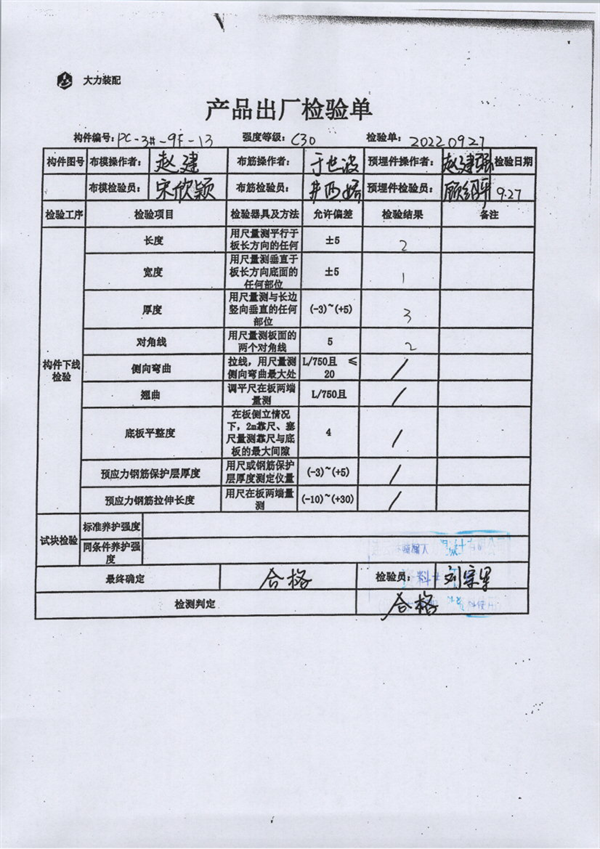 大力装配
产品出厂检验单
构件编号: PC-3#-9F-13 强度等级: C30 检验单: 20220927
构件图号 布模操作者: 赵建 布筋操作者: 于世波 预埋件操作者: 赵建强 检验日期
布模检验员: 宋欣颖 布筋检验员: 预埋件检验员: 9.27
检验工序 检验项目 检验器具及方法 允许偏差 检验结果 备注
构件下线检验
长度 用尺量测平行于板长方向的任何 ±5 2
宽度 用尺量测垂直于板长方向底面的任何部位 ±5 1
厚度 用尺量测与长边竖向垂直的任何部位 (-3)~(+5) 3
对角线 用尺量测板面的两个对角线 5 2
侧向弯曲 拉线，用尺量测侧向弯曲最大处 L/750且 ≤20 /
翘曲 调平尺在板两端量测 L/750且 /
底板平整度 在板侧立情况下，2m靠尺、塞尺量测靠尺与底板的最大间隙 4 /
预应力钢筋保护层厚度 用尺或钢筋保护层厚度测定仪量 (-3)~(+5) /
预应力钢筋拉伸长度 用尺在板两端量测 (-10)~(+30) /
试块检验 标准养护强度
同条件养护强度
最终确定 合格 检验员:
检测判定 合格